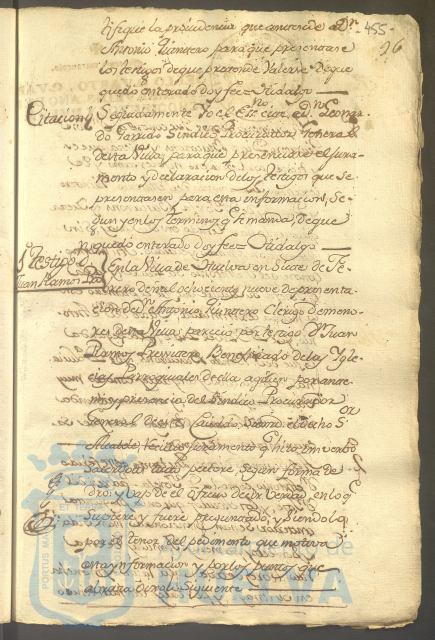 455
96
tifique la providencia que antecede a Dn.
Antonio Quintero para que presentase
los testigos de que pretende Valerse de que
quedó enterado doy fee = Hidalgo
Citacion
Seguidamente Yo el Essno. cité a Dn. Leonar-
do Garrido Sindico Procurador General
de esta Villa, para que presenciare el jura-
mento y declaracion de los testigos que se
presentasen para esta informacion, se-
gun y en los terminos q. se manda, de que
quedó enterado doy fee = Hidalgo
1r. Testigo Dn.
Juan Ramos Pro.
En la Villa de Huelva en Siete de Fe-
brero de mil ochocientos nueve de presenta-
cion de Dn. Antonio Quintero Clerigo de meno-
res de esta Villa parecio por testigo Dn. Juan
Ramos Presvitero Beneficiado de las Ygle-
cias Parroquiales de ella, a quien por ante
mi y presencia del Sindico Procurador
General de este Cavildo, Su md. el dicho Sor.
Alcalde, recivió juramento q. hizo in verbo
sacerdotis tacto pectore segun forma de
dro. y vajo de el ofrecio decir verdad en lo q.
supiere y fuere preguntado, y siendolo
por el tenor del pedimento que motiva
esta ynformacion y por los puntos que
abraza dijo lo siguiente
Ayuntamiento de
HUELVA
PORTUS MARIS